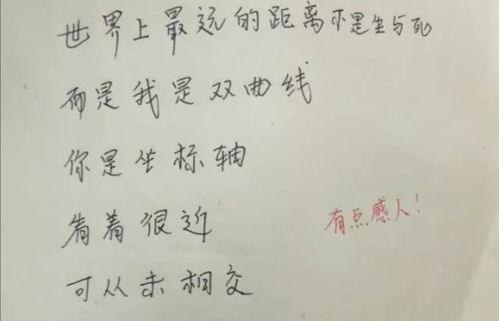 世界上最远的距离不是生与死
而是我是双曲线
你是坐标轴
看着很近
有点感人！
可从未相交